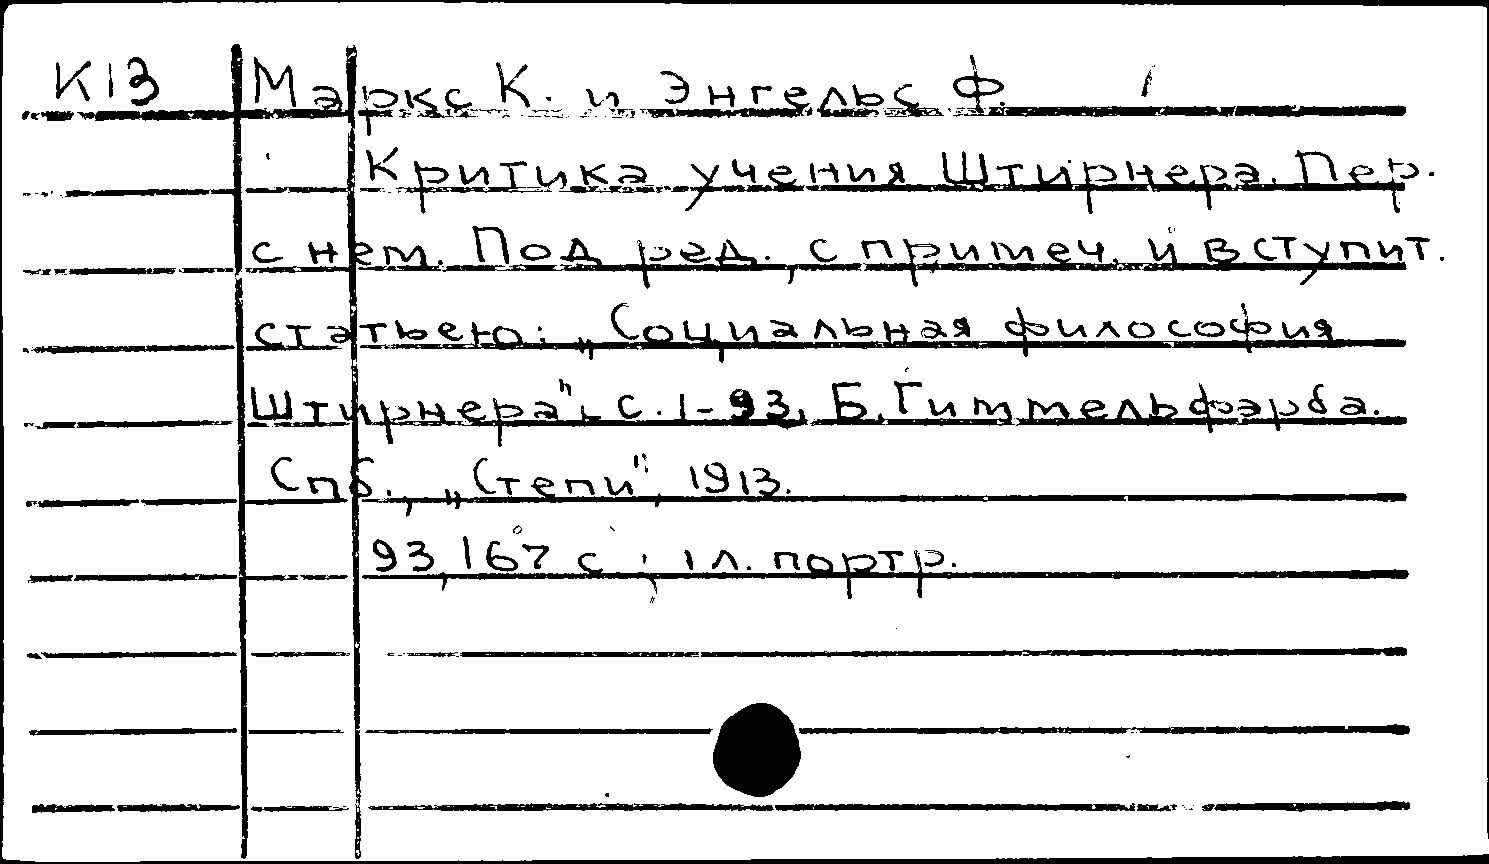 К13 Маркс К. и Энгельс Ф.
Критика учения Штирнера. Пер.
с нем. Под ред., с примеч. и вступит.
статьею: „Социальная философия
Штирнера", с. 1-93, Б. Гиммельфарба.
Спб., „Степи", 1913.
93, 167 с.; 1 л. портр.